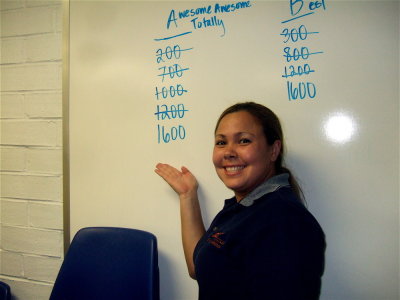 Awesome Awesome
Totally
200
700
1000
1200
1600
Best
300
800
1200
1600